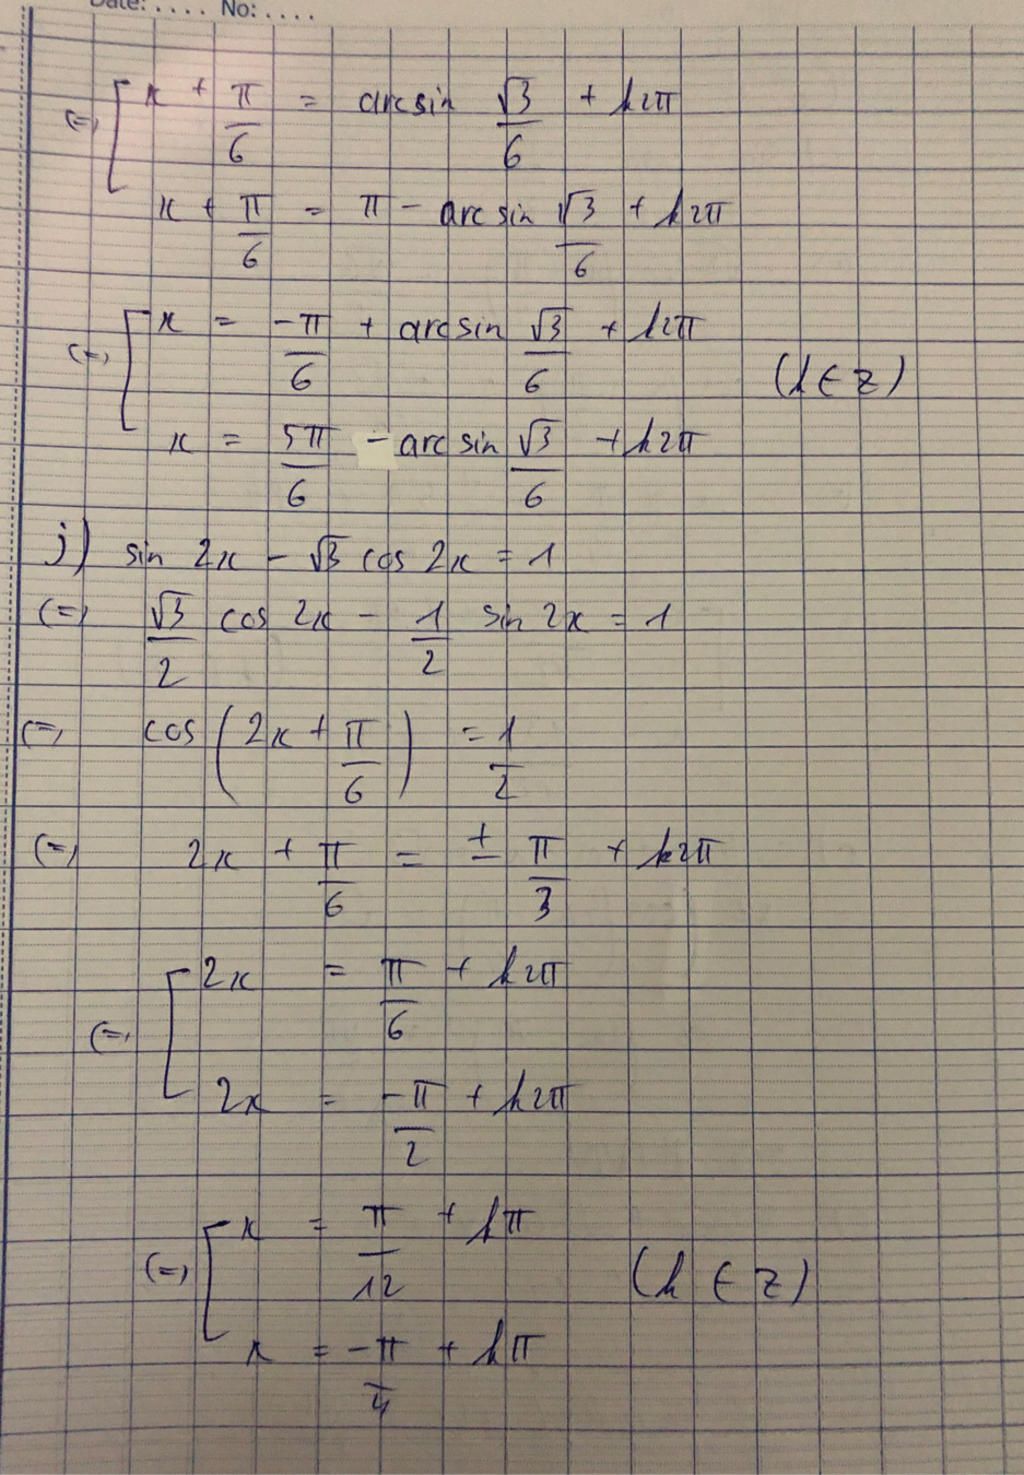 Date: .... No: ....
(=) [ x + π/6 = arcsin √3/6 + k2π
x + π/6 = π - arcsin √3/6 + k2π
(=) [ x = -π/6 + arcsin √3/6 + k2π
(k ∈ z)
x = 5π/6 - arcsin √3/6 + k2π
j) sin 2x - √3 cos 2x = 1
(=) √3/2 cos 2x - 1/2 sin 2x = 1
(=) cos (2x + π/6) = 1/2
(=) 2x + π/6 = ± π/3 + k2π
(=) [ 2x = π/6 + k2π
2x = -π/2 + k2π
(=) [ x = π/12 + kπ
(k ∈ z)
x = -π/4 + kπ